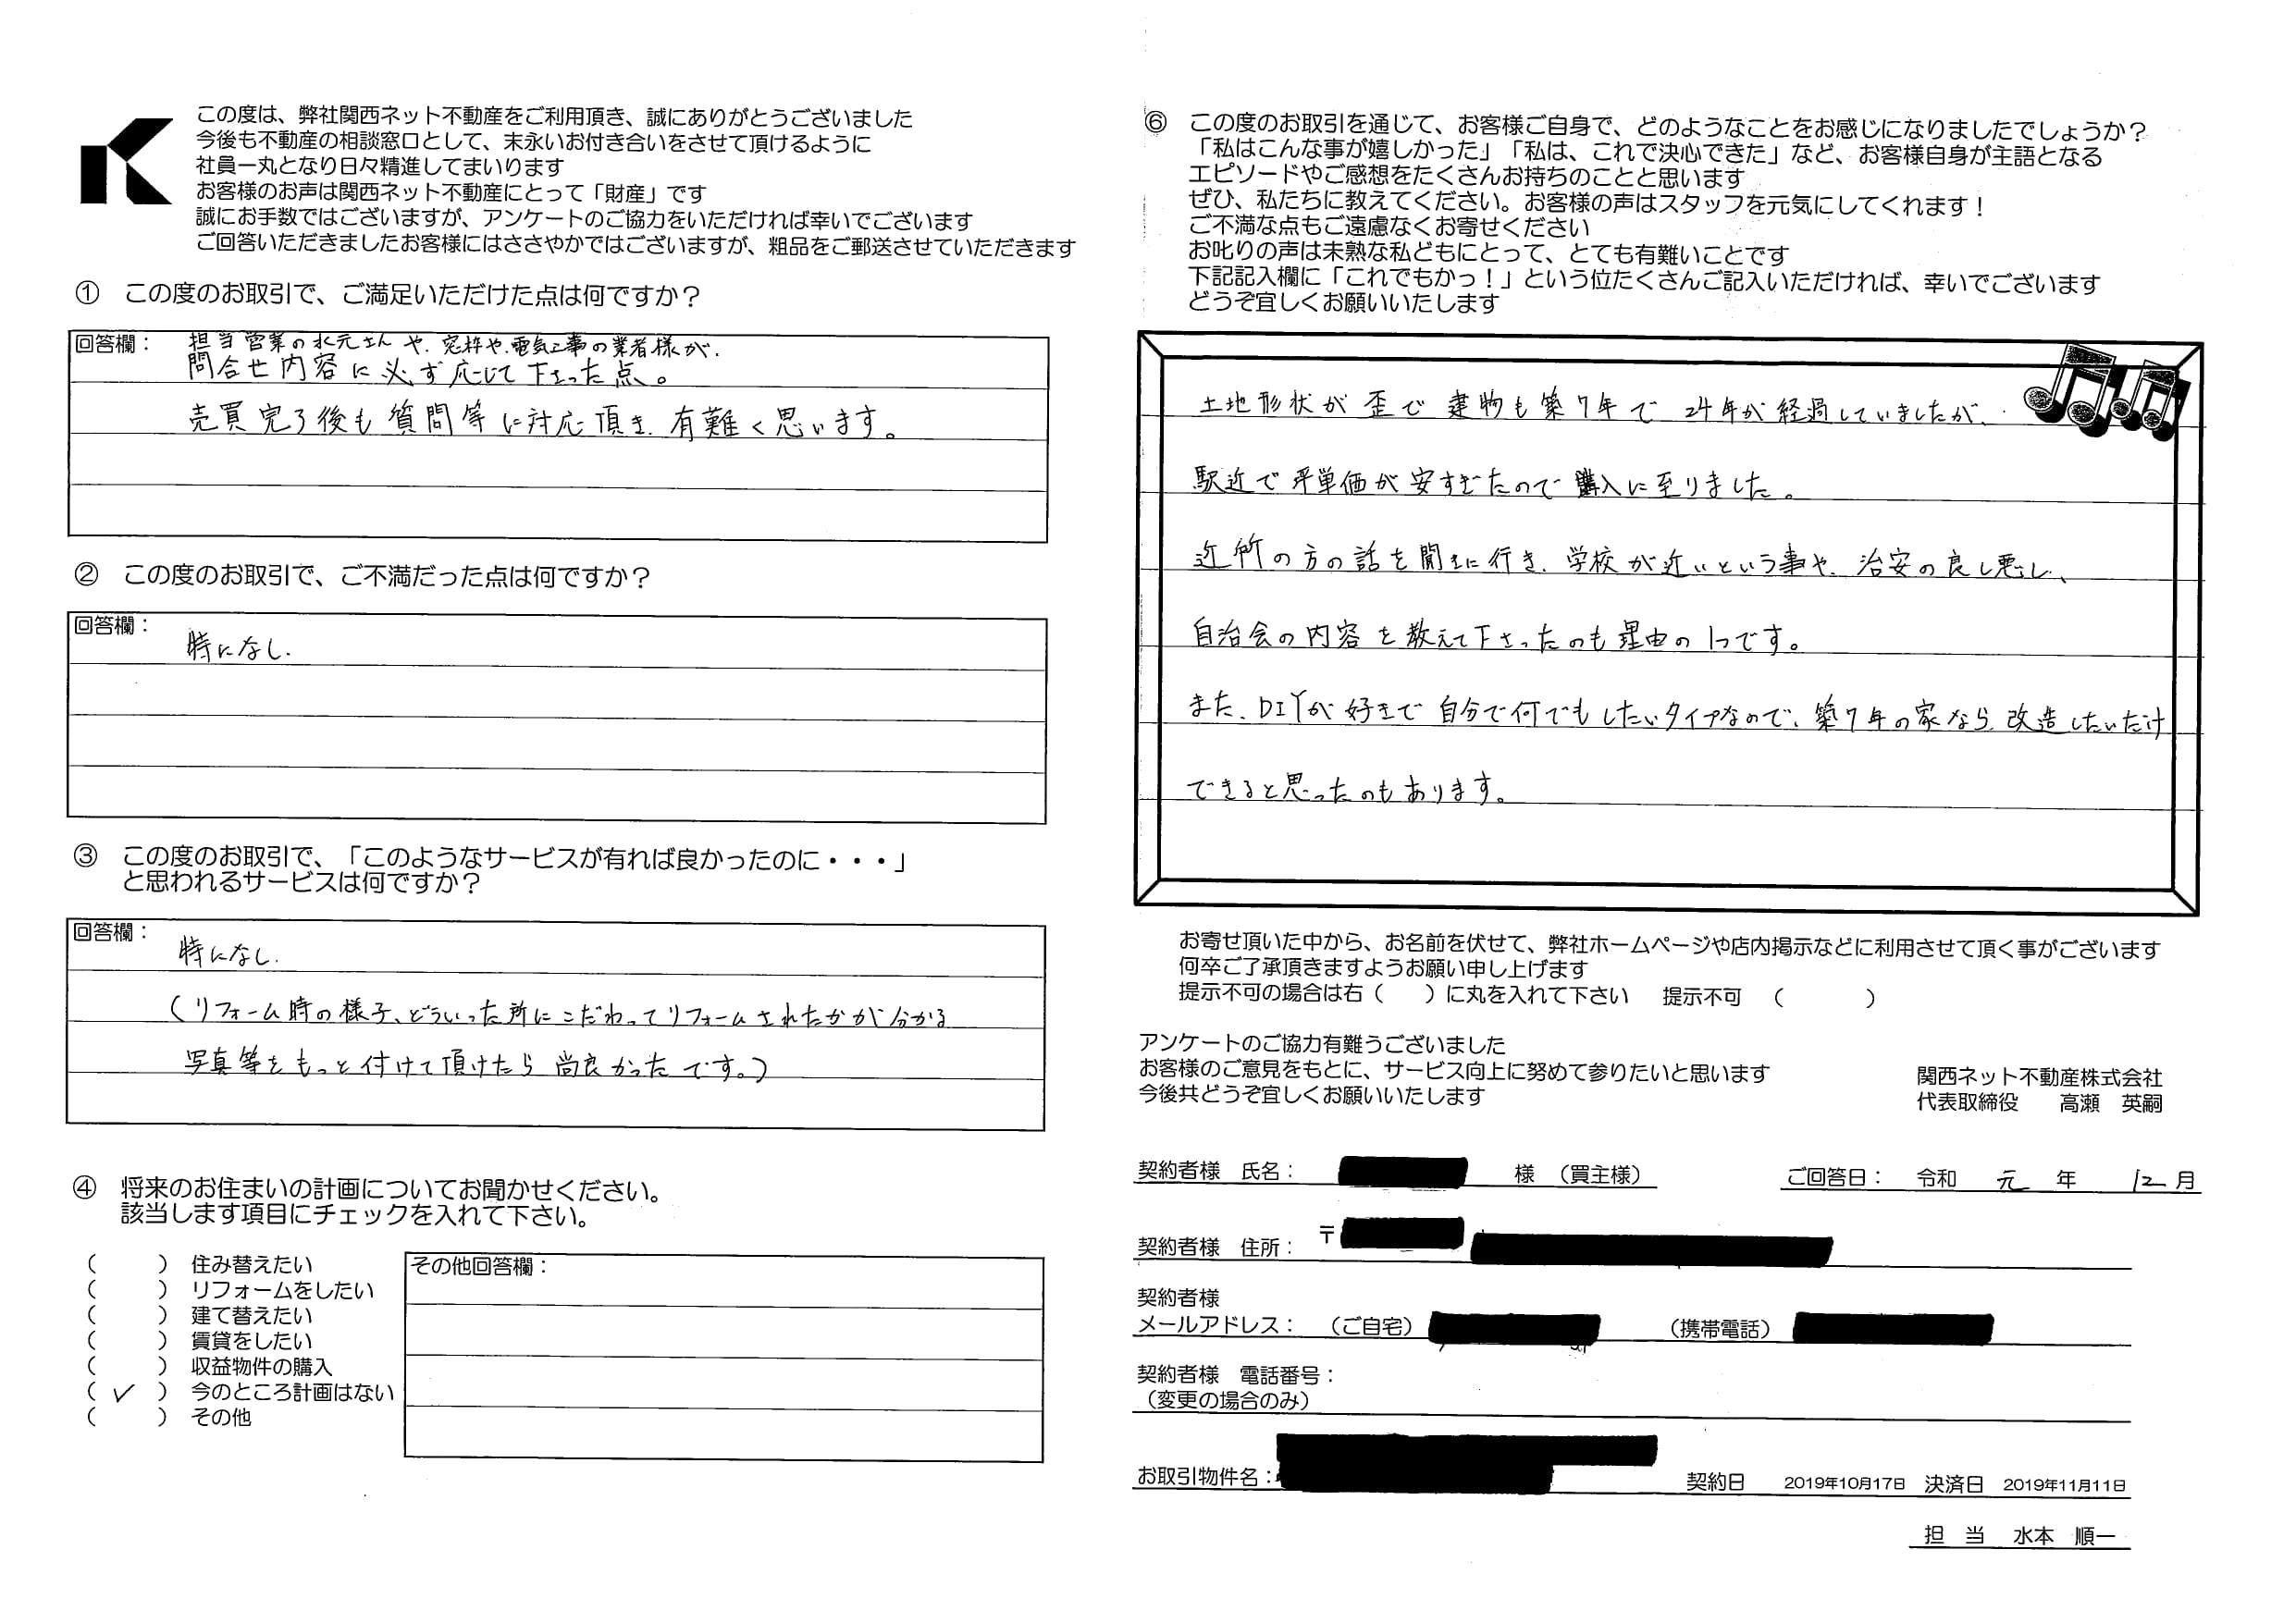 この度は、弊社関西ネット不動産をご利用頂き、誠にありがとうございました
今後も不動産の相談窓口として、末永いお付き合いをさせて頂けるように
社員一丸となり日々精進してまいります
お客様のお声は関西ネット不動産にとって「財産」です
誠にお手数ではございますが、アンケートのご協力をいただければ幸いでございます
ご回答いただきましたお客様にはささやかではございますが、粗品をご郵送させていただきます
① この度のお取引で、ご満足いただけた点は何ですか？
回答欄： 担当営業の水元さんや、窓枠や、電気工事の業者様が、
問合せ内容に必ず応じて下さった点。
売買完了後も質問等に対応頂き、有難く思います。
② この度のお取引で、ご不満だった点は何ですか？
回答欄：
特になし.
③ この度のお取引で、「このようなサービスが有れば良かったのに・・・」
と思われるサービスは何ですか？
回答欄：
特になし.
（リフォーム時の様子、どういった所にこだわってリフォームされたかが分かる
写真等をもっと付けて頂けたら尚良かったです。）
④ 将来のお住まいの計画についてお聞かせください。
該当します項目にチェックを入れて下さい。
（　　）住み替えたい
（　　）リフォームをしたい
（　　）建て替えたい
（　　）賃貸をしたい
（　　）収益物件の購入
（ ✓ ）今のところ計画はない
（　　）その他
その他回答欄：
⑥ この度のお取引を通じて、お客様ご自身で、どのようなことをお感じになりましたでしょうか？
「私はこんな事が嬉しかった」「私は、これで決心できた」など、お客様自身が主語となる
エピソードやご感想をたくさんお持ちのことと思います
ぜひ、私たちに教えてください。お客様の声はスタッフを元気にしてくれます！
ご不満な点もご遠慮なくお寄せください
お叱りの声は未熟な私どもにとって、とても有難いことです
下記記入欄に「これでもかっ！」という位たくさんご記入いただければ、幸いでございます
どうぞ宜しくお願いいたします
土地形状が歪で建物も築7年で24年が経過していましたが、
駅近で坪単価が安すぎたので購入に至りました。
近所の方の話を聞きに行き、学校が近いという事や、治安の良し悪し、
自治会の内容を教えて下さったのも理由の1つです。
また、DIYが好きで自分で何でもしたいタイプなので、築7年の家なら、改造したいだけ
できると思ったのもあります。
お寄せ頂いた中から、お名前を伏せて、弊社ホームページや店内掲示などに利用させて頂く事がございます
何卒ご了承頂きますようお願い申し上げます
提示不可の場合は右（　　）に丸を入れて下さい　提示不可　（　　　）
アンケートのご協力有難うございました
お客様のご意見をもとに、サービス向上に努めて参りたいと思います
今後共どうぞ宜しくお願いいたします
関西ネット不動産株式会社
代表取締役　高瀬　英嗣
契約者様　氏名：　様　（買主様）　ご回答日：　令和　元　年　12　月
契約者様　住所：　〒
契約者様
メールアドレス：　（ご自宅）　（携帯電話）
契約者様　電話番号：
（変更の場合のみ）
お取引物件名：　契約日　2019年10月17日　決済日　2019年11月11日
担　当　水本　順一